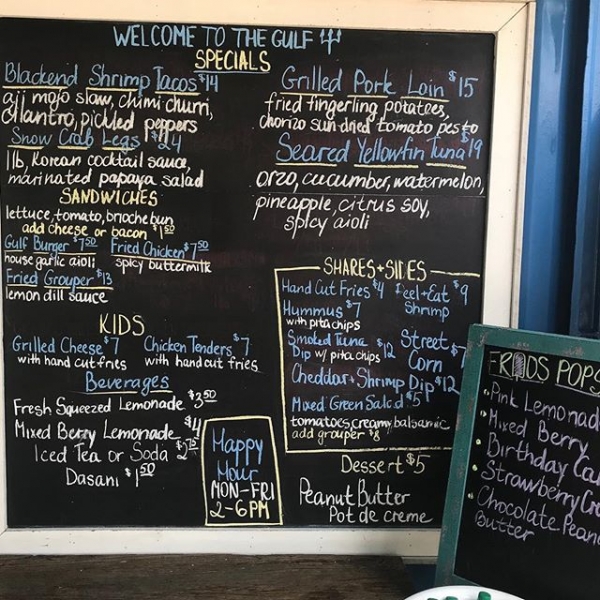 WELCOME TO THE GULF
SPECIALS
Blackend Shrimp Tacos $14
aji mojo slaw, chimi churri,
cilantro, pickled peppers
Snow Crab Legs $24
1lb, Korean cocktail sauce,
marinated papaya salad
Grilled Pork Loin $15
fried fingerling potatoes,
chorizo sun-dried tomato pesto
Seared Yellowfin Tuna $19
orzo, cucumber, watermelon,
pineapple, citrus soy,
spicy aioli
SANDWICHES
lettuce, tomato, brioche bun
add cheese or bacon $1.50
Gulf Burger $7.50
house garlic aioli
Fried Chicken $7.50
spicy buttermilk
Fried Grouper $13
lemon dill sauce
KIDS
Grilled Cheese $7
with hand cut fries
Chicken Tenders $7
with hand cut fries
Beverages
Fresh Squeezed Lemonade $3.50
Mixed Berry Lemonade $4
Iced Tea or Soda $2.75
Dasani $1.50
Happy
Hour
MON-FRI
2-6PM
SHARES + SIDES
Hand Cut Fries $4
Hummus $7
with pita chips
Smoked Tuna $12
Dip w/ pita chips
Peel+Eat $9
Shrimp
Street $7
Corn
Cheddar + Shrimp Dip $12
Mixed Green Salad $5
tomatoes, creamy balsamic
add grouper $8
Dessert $5
Peanut Butter
Pot de creme
FRIOS POPS
Pink Lemonad
Mixed Berry
Birthday Ca
Strawberry Cr
Chocolate Peanu
Butter